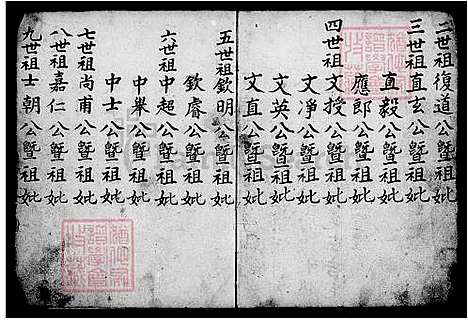 二世祖復道公暨祖妣
三世祖直玄公暨祖妣
直毅公暨祖妣
應郎公暨祖妣
四世祖文授公暨祖妣
文凈公暨祖妣
文英公暨祖妣
文直公暨祖妣
五世祖欽明公暨祖妣
欽睿公暨祖妣
六世祖中超公暨祖妣
中舉公暨祖妣
中士公暨祖妣
七世祖尚甫公暨祖妣
八世祖嘉仁公暨祖妣
九世祖士朝公暨祖妣